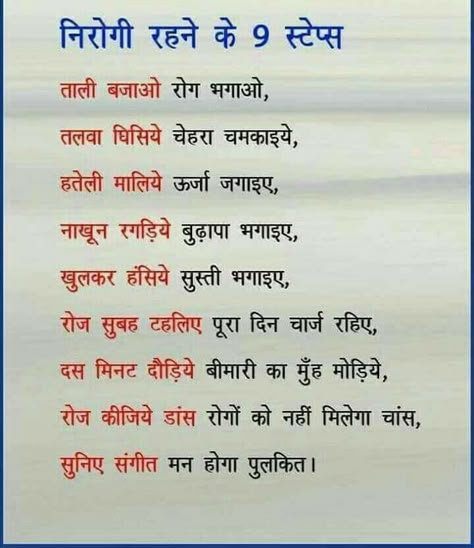 निरोगी रहने के 9 स्टेप्स
ताली बजाओ रोग भगाओ,
तलवा घिसिये चेहरा चमकाइये,
हतेली मालिये ऊर्जा जगाइए,
नाखून रगड़िये बुढ़ापा भगाइए,
खुलकर हंसिये सुस्ती भगाइए,
रोज सुबह टहलिए पूरा दिन चार्ज रहिए,
दस मिनट दौड़िये बीमारी का मुँह मोड़िये,
रोज कीजिये डांस रोगों को नहीं मिलेगा चांस,
सुनिए संगीत मन होगा पुलकित।